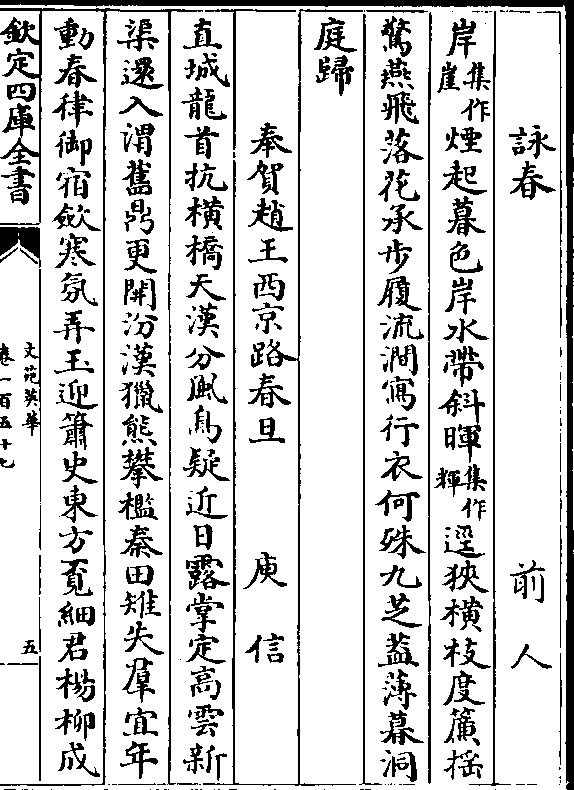 詠春 前人
岸集作崖煙起暮色岸水帶斜暉集作輝逕狹橫枝度簾揺
驚燕飛落花承步履流澗寫行衣何殊九芝葢薄暮洞
庭歸
奉賀趙王西京路春旦 庾信
直城龍首抗橫橋天漢分風烏疑近日露掌定高雲新
渠還入渭舊鼎更開汾漢獵熊攀檻秦田雉失羣宜年
動春律御宿歛寒氛弄玉迎簫史東方覓細君楊柳成
欽定四庫全書
文苑英華
卷一百五十七
五